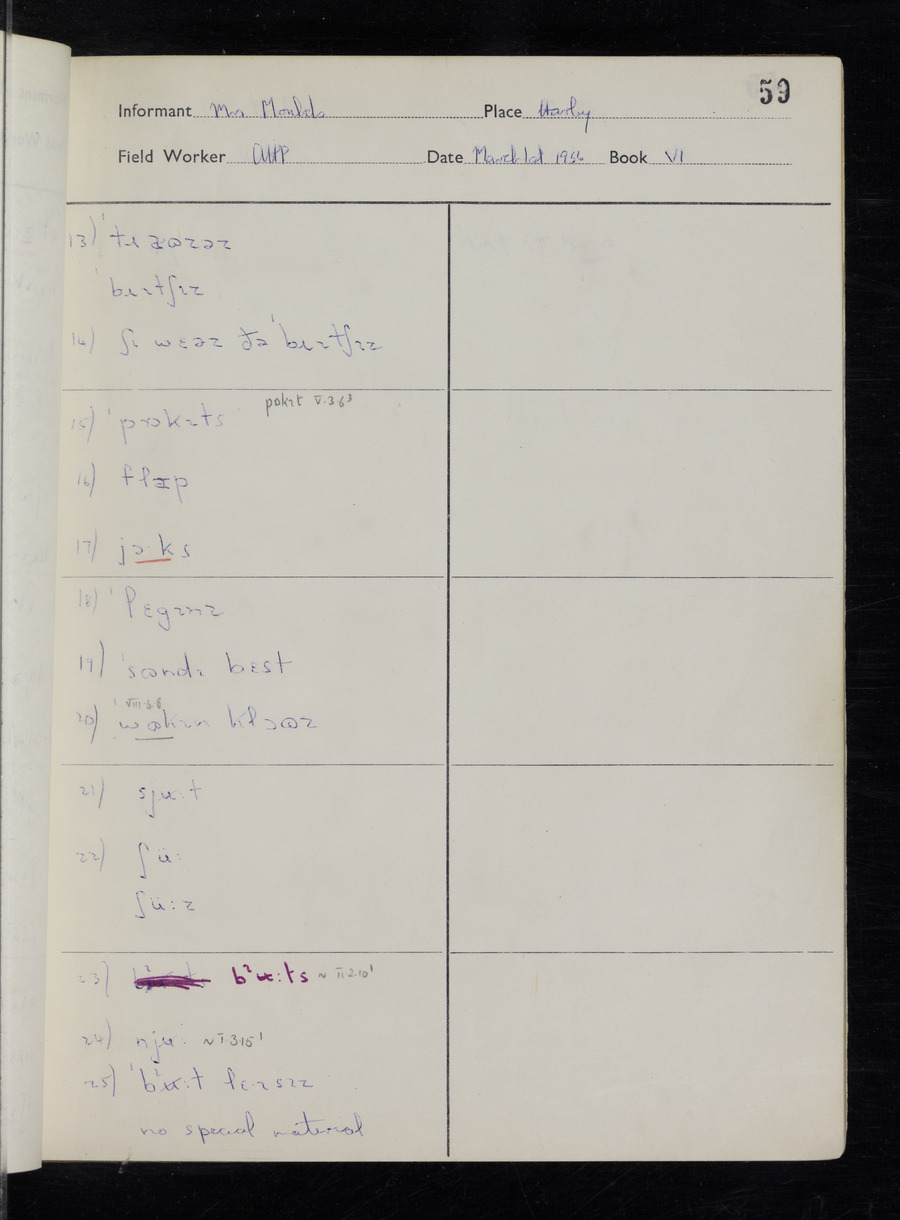 59
Informant Mrs Moulds Place Harby
Field Worker Date March 1st 1956 Book VI
13) ˈtɹaʊzəz
ˈbɹɪtʃɪz
14) ʃɪ wɛəz ðə ˈbɹɪtʃɪz
15) ˈpɔkɪts pɒkɪt V.3.6³
16) flap
17) jɔ·ks
18) ˈlɛgɪnz
19) ˈsʊndɪ bɛst
VIII.6.8
20) ˈwəkɪn klɔʊz
21) sju:t
22) ʃü:
ʃü:z
23) b²ʉ:ts ~ II.2.10¹
24) nju: ~ I.3.15¹
25) ˈb²ʉ:t lɛɪsɪz
no special material